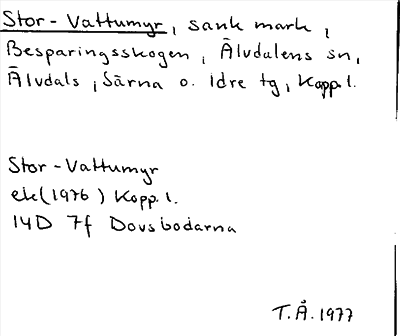 Stor-Vattumyr, sank mark,
Besparingsskogen, Älvdalens sn,
Älvdals, Särna o. Idre tg, Kopp. l.
Stor-Vattumyr
ek (1976) Kopp. l.
14D 7f Dovsbodarna
T.Å. 1977